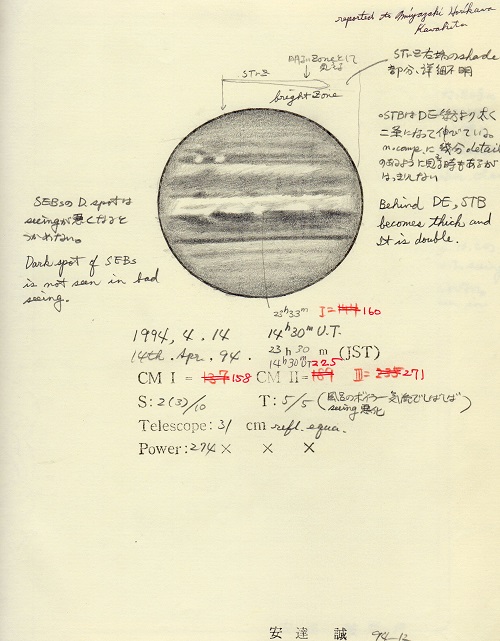 reported to Miyazaki Horikawa
Kuwahito
STrZ
として
見える
bright Zone
STrZ 右端のshade
部分、詳細不明
○STBはDE後方より太く
二条になって伸びている。
m.comp.に 成分 detail
のあるように見える時もあるが
はっきりしない
Behind DE, STB
becomes thick and
It is double.
SEBsのD.spotは
seeingが悪くなると
つかめない。
Dark spot of SEBs
is not seen in bad
seeing.
23h33m I= 160
1994, 4. 14 14h30m U.T.
14th. Apr. 94. 23h30m (JST)
14h30m UT 225
CM I = 137 158 CM II = 189 III= 235 271
S: 2(3)/10 T: 5/5 (風呂のボイラー気流でしばしば
seeing悪化)
Telescope: 31 cm refl. equa.
Power: 274 × × ×
安達 誠 94-12